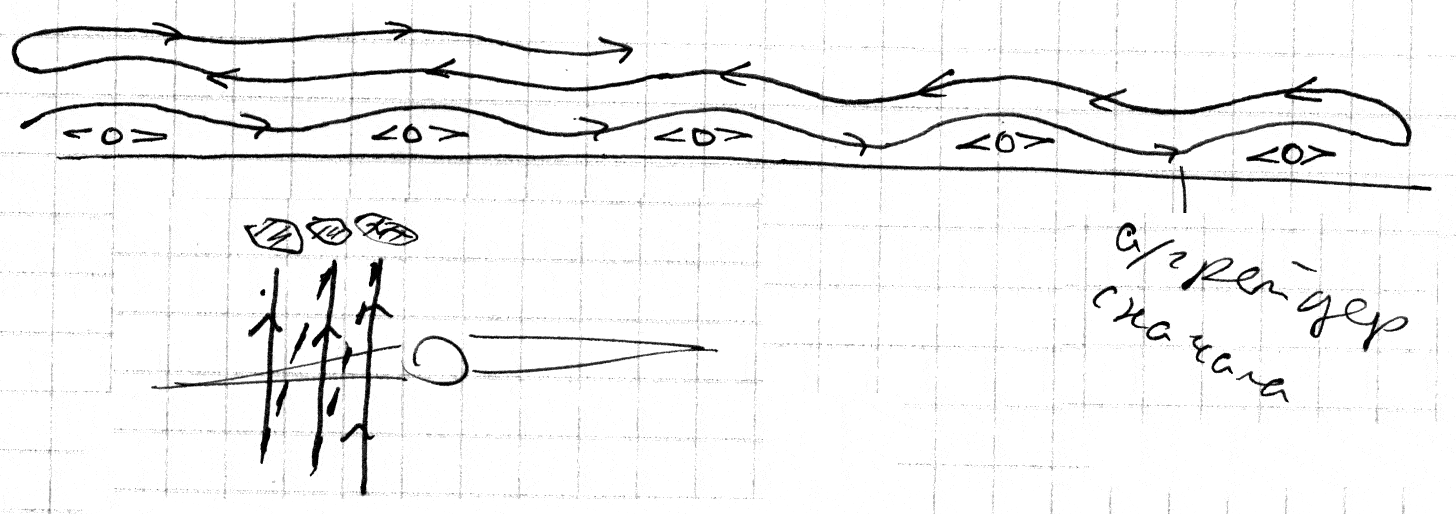 <0> <0> <0> <0> <0>
а/грейдер
сначала